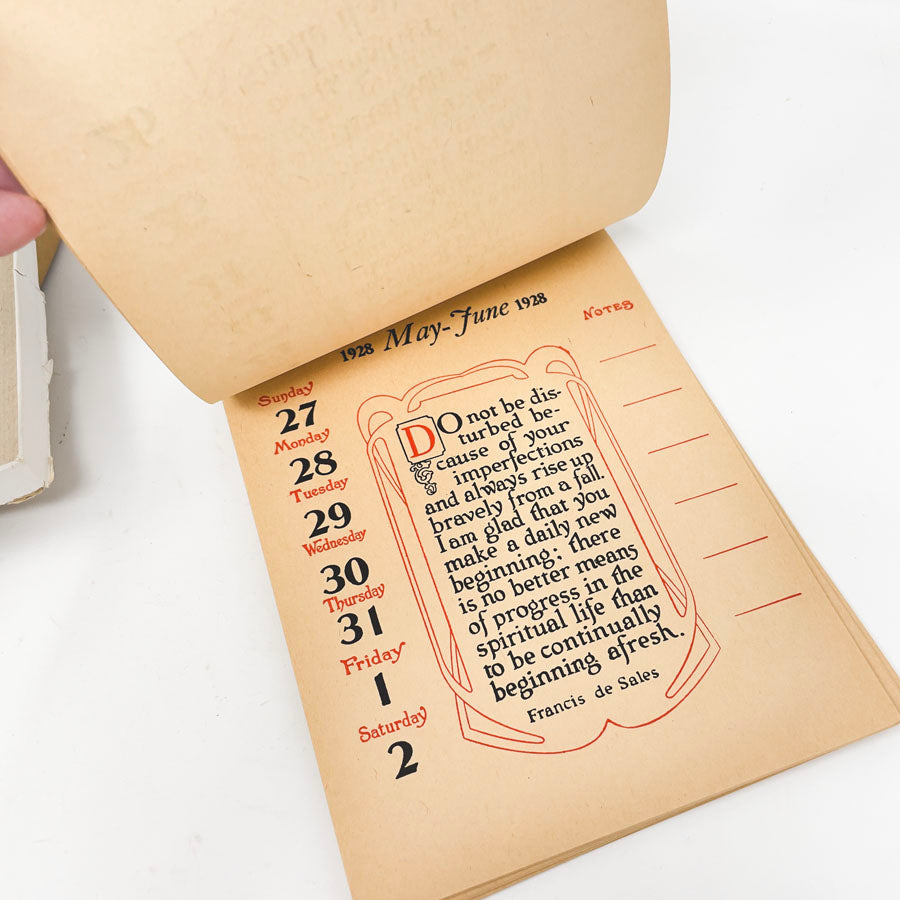 1928 May-June 1928
Notes
Sunday
27
Monday
28
Tuesday
29
Wednesday
30
Thursday
31
Friday
1
Saturday
2
DO not be dis-
turbed be-
cause of your
imperfections
and always rise up
bravely from a fall.
I am glad that you
make a daily new
beginning; there
is no better means
of progress in the
spiritual life than
to be continually
beginning afresh.
Francis de Sales